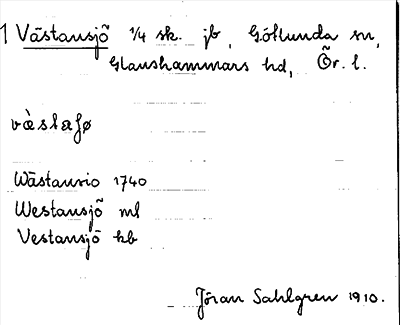 1 Västansjö 1/4 sk. jb, Götlunda sn,
Glanshammars hd, Ör. l.
Wästansio 1740
Westansjö ml
Vestansjö kb
Jöran Sahlgren 1910.